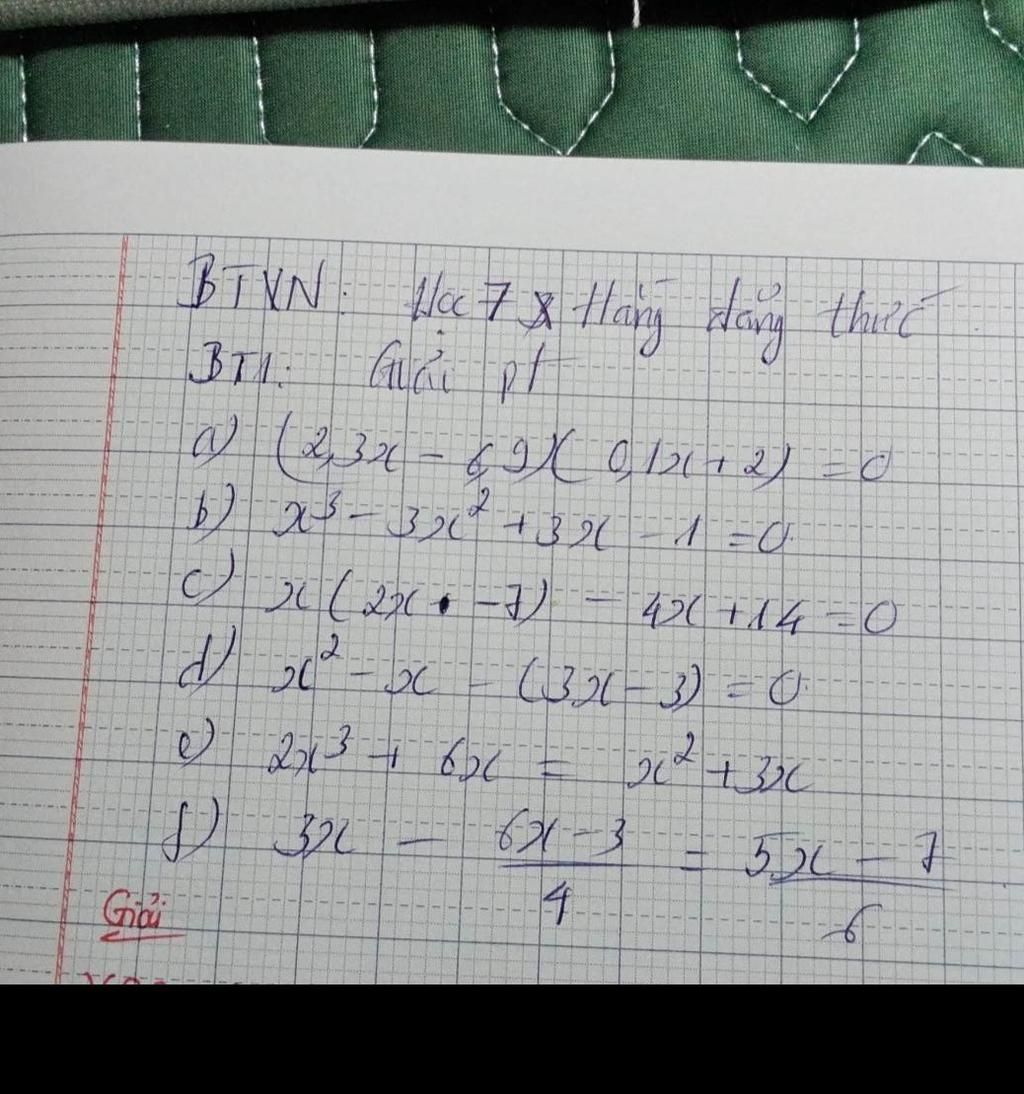 BTVN: Học 7 Hằng đẳng thức.
BT1: Giải pt
a) (2,3x - 6,9)(0,1x + 2) = 0
b) x³ - 3x² + 3x - 1 = 0.
c) x(2x - 7) - 4x + 14 = 0
d) x² - x - (3x - 3) = 0.
e) 2x³ + 6x = x² + 3x
f) 3x - (6x - 3)/4 = (5x - 7)/6
Giải